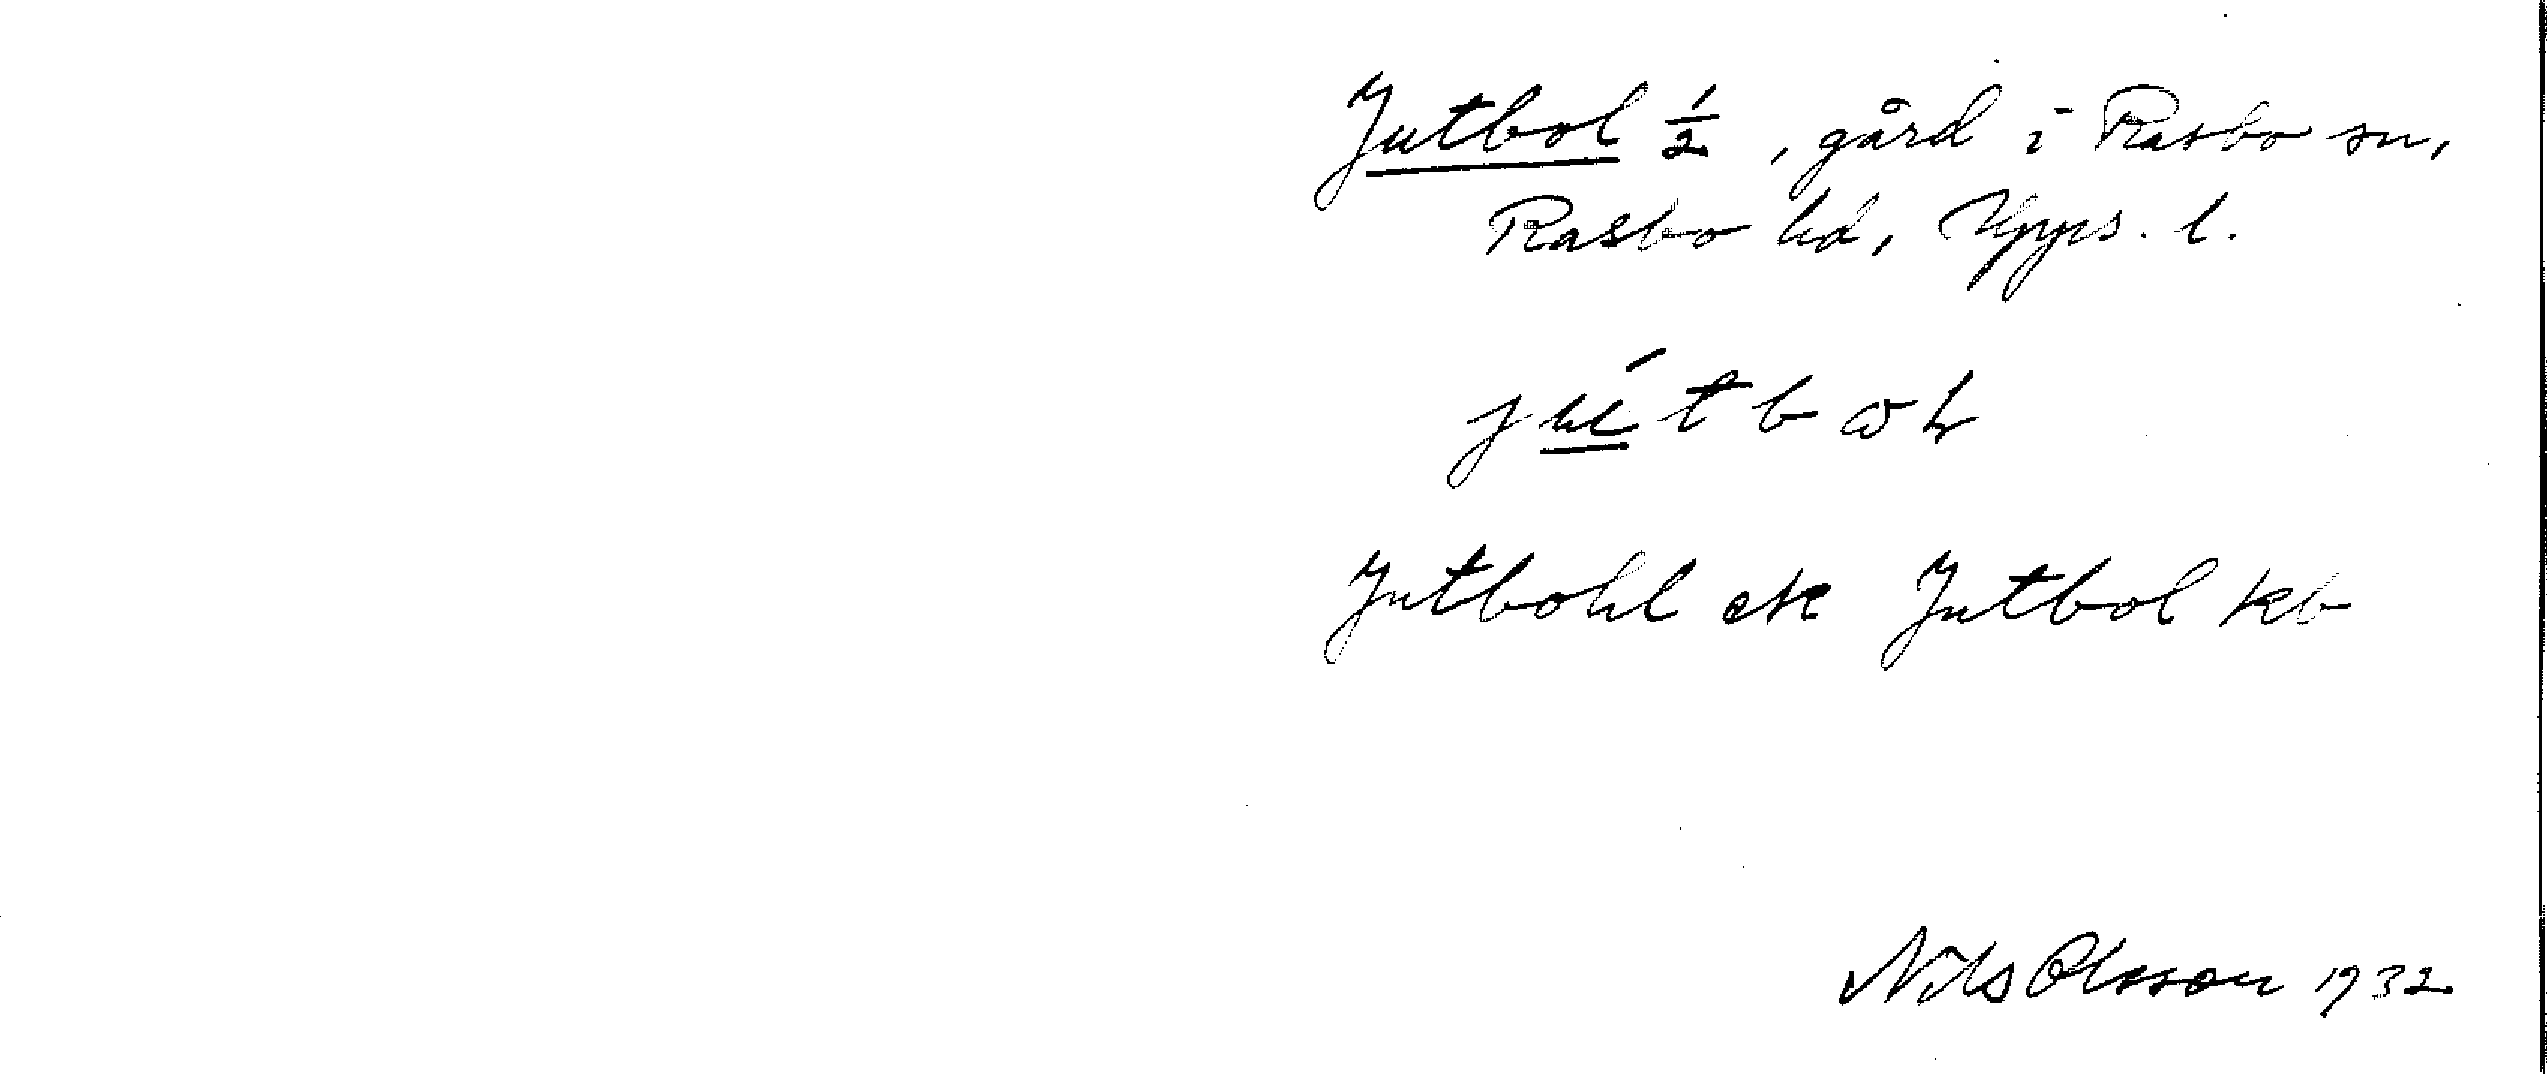 Jutbol 1/2, gård i Rasbo sn,
Rasbo hd, Upps. l.
Jutbohl ek Jutbol kb
Nils Olsson 1932